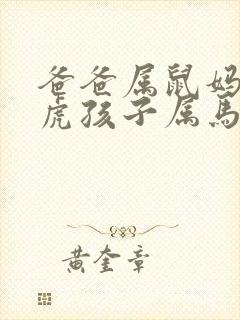 爸爸属鼠妈
虎孩子属马
黄奎章